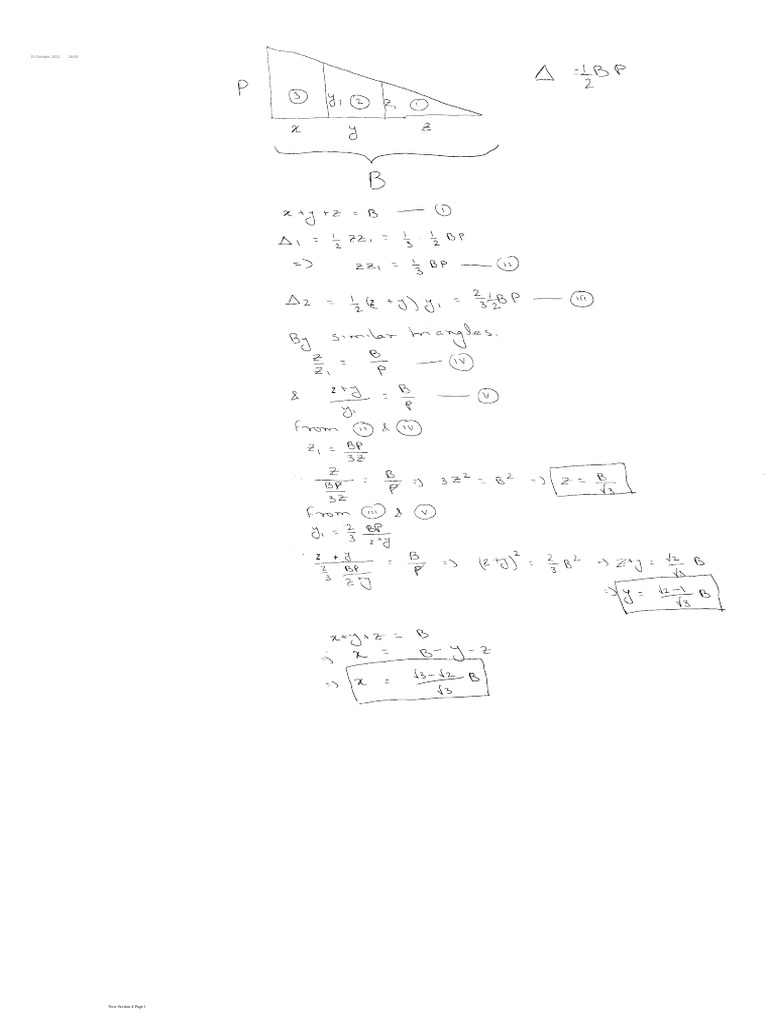 25 October 2022 20:30
P
③ y₁ ② z₁ ①
x y z
B
Δ = 1/2 BP
x + y + z = B —— (i)
Δ₁ = 1/2 zz₁ = 1/3 · 1/2 BP
=> zz₁ = 1/3 BP —— (ii)
Δ2 = 1/2 (z + y) y₁ = 2/3 1/2 BP —— (iii)
By similar triangles.
z/z₁ = B/P —— (iv)
& (z+y)/y₁ = B/P —— (v)
From (ii) & (iv)
z₁ = BP/3z
z/(BP/3z) = B/P => 3z² = B² => z = B/√3
From (iii) & (v)
y₁ = 2/3 BP/(z+y)
(z + y)/(2/3 BP/(z+y)) = B/P => (z+y)² = 2/3 B² => z+y = √2/√3 B
=> y = (√2-1)/√3 B
x+y+z = B
=> x = B - y - z
=> x = (√3-√2)/√3 B
New Section 4 Page 1